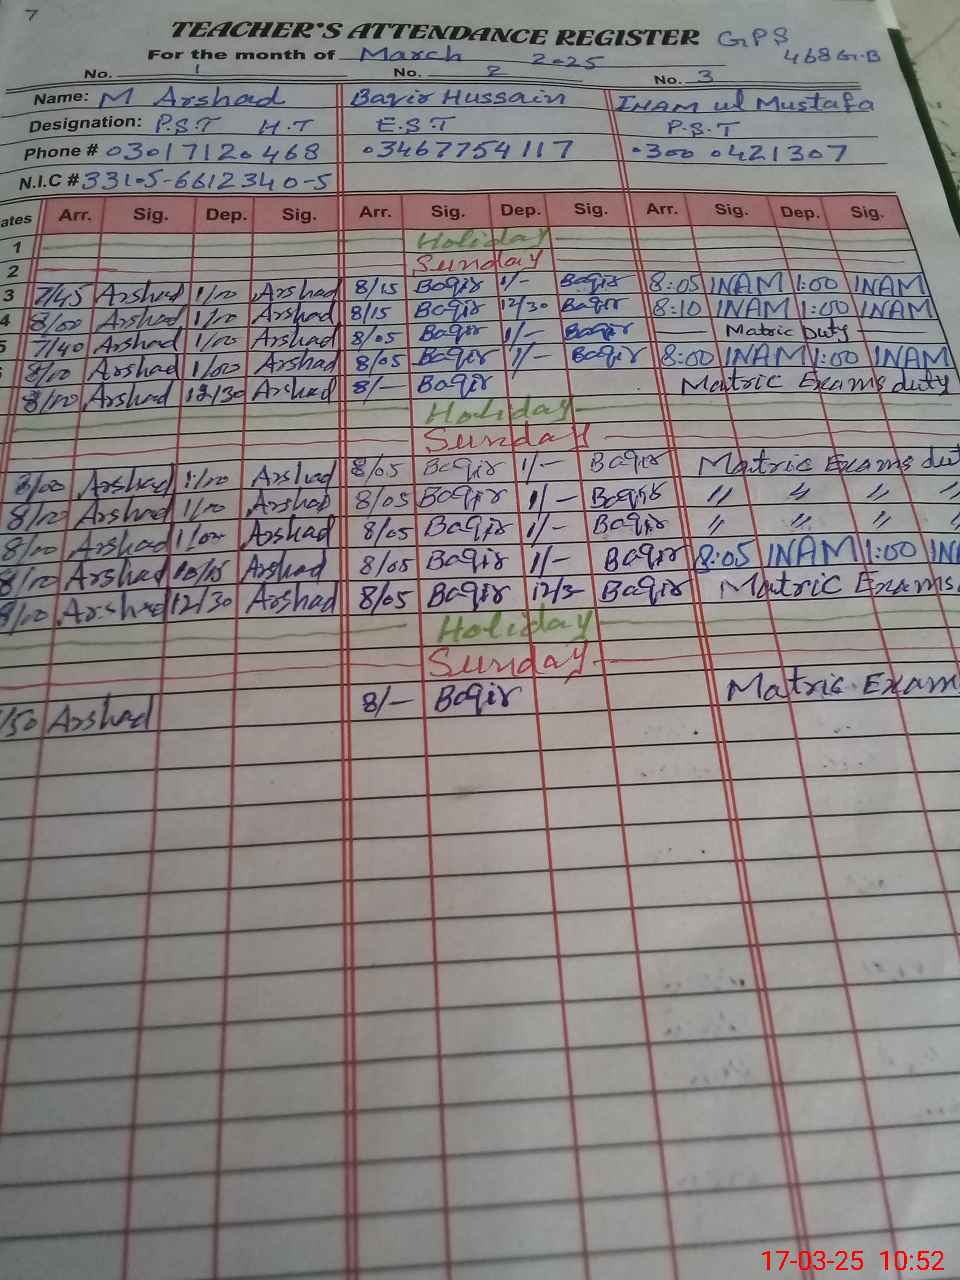 7
TEACHER'S ATTENDANCE REGISTER GPS
For the month of March 2025 468 G.B
No. 1 No. 2 No. 3
Name: M Arshad Baqir Hussain INAM ul Mustafa
Designation: P.S.T H.T E.S.T P.S.T
Phone # 03017120468 03467754117 0300 0421307
N.I.C # 33105-6612340-5
ates Arr. Sig. Dep. Sig. Arr. Sig. Dep. Sig. Arr. Sig. Dep. Sig.
1 Holiday
2 Sunday
3 7/45 Arshad 1/00 Arshad 8/15 Baqir 1/- Baqir 8:05 INAM 1:00 INAM
4 8/00 Arshad 1/00 Arshad 8/15 Baqir 12/30 Baqir 8:10 INAM 1:00 INAM
5 7/40 Arshad 1/00 Arshad 8/05 Baqir 1/- Baqir Matric Duty
8/00 Arshad 1/00 Arshad 8/05 Baqir 1/- Baqir 8:00 INAM 1:00 INAM
8/00 Arshad 12/30 Arshad 8/- Baqir Matric Exams duty
Holiday
Sunday
8/00 Arshad 1/00 Arshad 8/05 Baqir 1/- Baqir Matric Exams dut
8/00 Arshad 1/00 Arshad 8/05 Baqir 1/- Baqir " " " "
8/00 Arshad 1/00 Arshad 8/05 Baqir 1/- Baqir " " " "
8/00 Arshad 10/15 Arshad 8/05 Baqir 1/- Baqir 8:05 INAM 1:00 IN
8/00 Arshad 12/30 Arshad 8/05 Baqir 12/3 Baqir Matric Exams
Holiday
Sunday
/50 Arshad 8/- Baqir Matric Exam
17-03-25 10:52